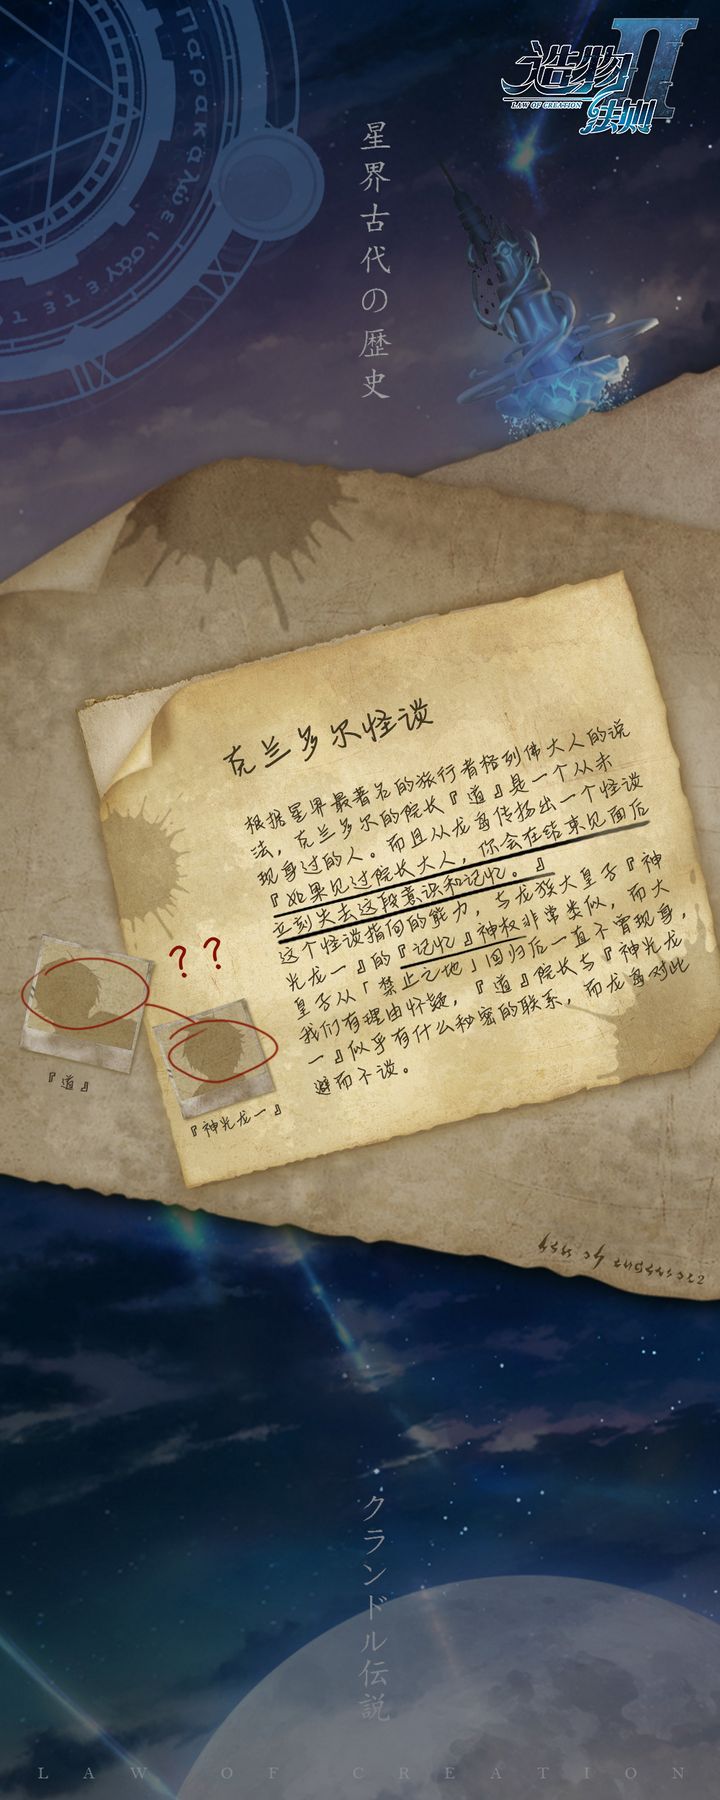 造物法则Ⅱ
LAW OF CREATION
星界古代の歴史
克兰多尔怪谈
根据星界最著名的旅行者格列佛大人的说
法，克兰多尔的院长『道』是一个从未
现身过的人。而且从龙岛传扬出一个怪谈
『如果见过院长大人，你会在结束见面后
立刻失去这段意识和记忆。』
这个怪谈指向的能力，与龙族大皇子『神
光龙一』的『记忆』神权非常类似，而大
皇子从「禁止之地」回归后一直不曾现身，
我们有理由怀疑，『道』院长与『神光龙
一』似乎有什么秘密的联系，而龙岛对此
避而不谈。
？？
『道』
『神光龙一』
クランドル伝説
LAW OF CREATION